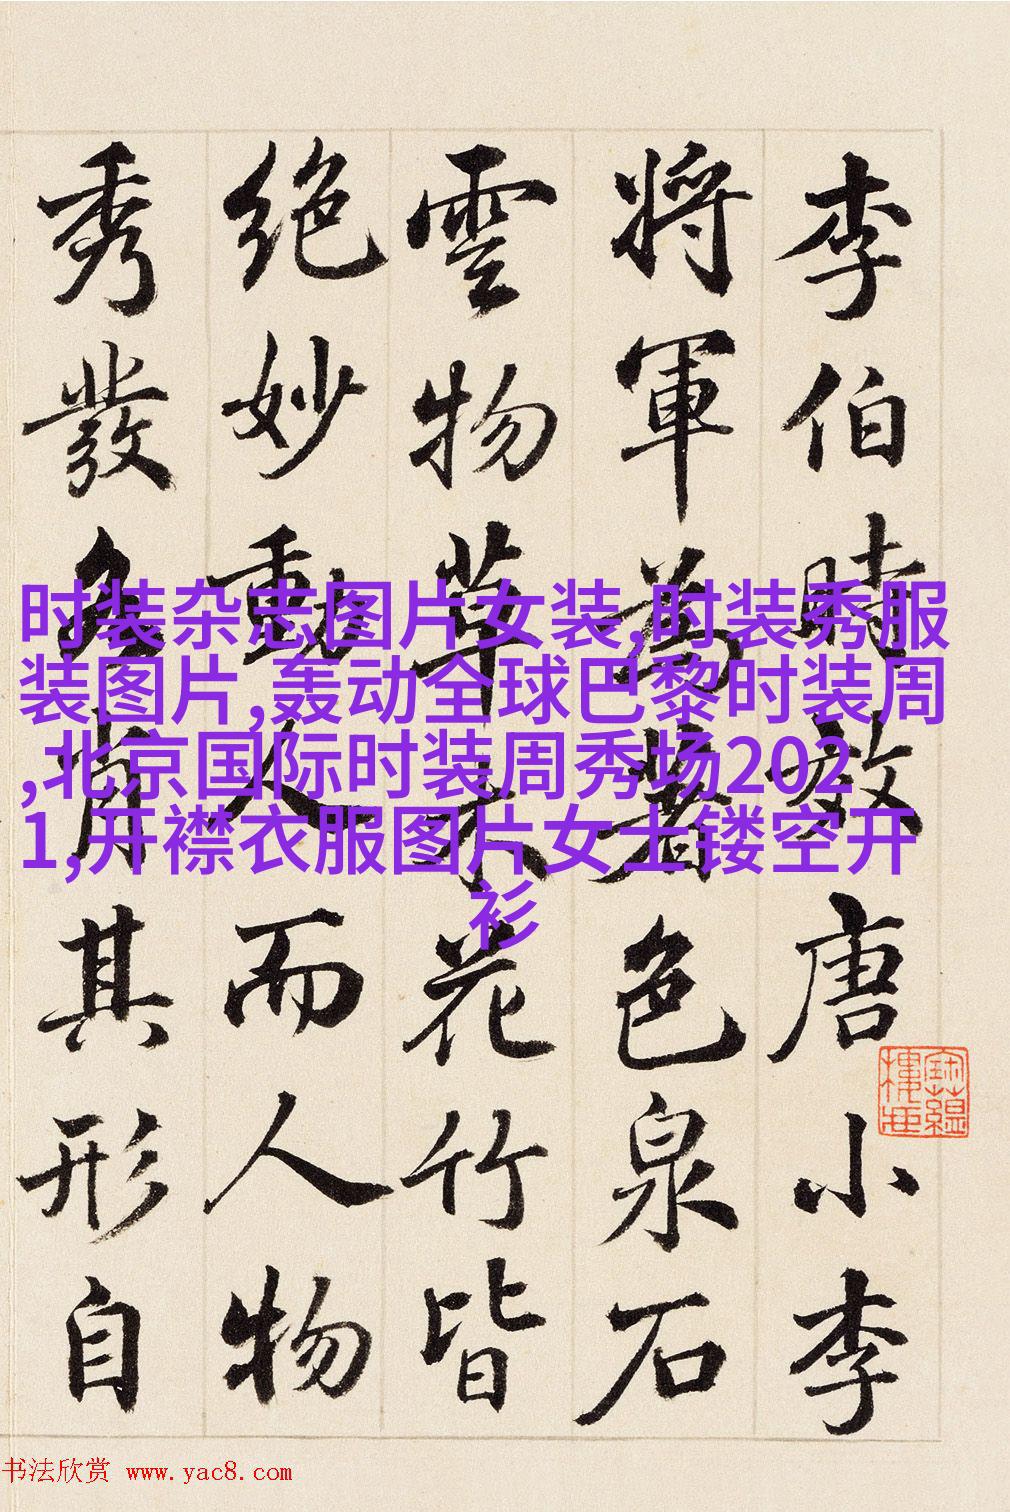 李伯時效唐小李
將軍爲著色泉石
雲物草木花竹皆
絶妙動人而人物
秀發各肖其形自
时装杂志图片女装,时装秀服
装图片,轰动全球巴黎时装周
,北京国际时装周秀场202
1,开襟衣服图片女士镂空开
衫
书法欣赏 www.yac8.com